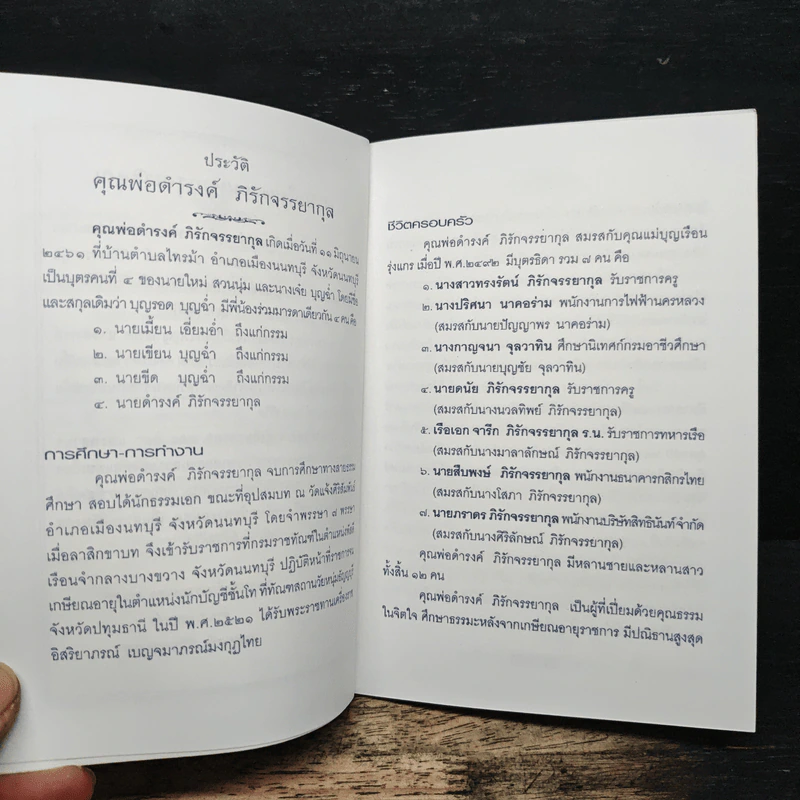 ประวัติ
คุณพ่อดำรงค์ ภิรักจรรยากุล
คุณพ่อดำรงค์ ภิรักจรรยากุล เกิดเมื่อวันที่ ๑๑ มิถุนายน
๒๔๖๑ ที่บ้านตำบลไทรม้า อำเภอเมืองนนทบุรี จังหวัดนนทบุรี
เป็นบุตรคนที่ ๔ ของนายใหม่ สวนนุ่ม และนางเจ๋ย บุญฉ่ำ โดยมีชื่อ
และสกุลเดิมว่า บุญรอด บุญฉ่ำ มีพี่น้องร่วมมารดาเดียวกัน ๔ คน คือ
๑. นายเมี้ยน เอี่ยมอ่ำ ถึงแก่กรรม
๒. นายเขียน บุญฉ่ำ ถึงแก่กรรม
๓. นายขีด บุญฉ่ำ ถึงแก่กรรม
๔. นายดำรงค์ ภิรักจรรยากุล
การศึกษา-การทำงาน
คุณพ่อดำรงค์ ภิรักจรรยากุล จบการศึกษาทางสายธรรม
ศึกษา สอบได้นักธรรมเอก ขณะที่อุปสมบท ณ วัดแจ้งศิริสัมพันธ์
อำเภอเมืองนนทบุรี จังหวัดนนทบุรี โดยจำพรรษา ๗ พรรษา
เมื่อลาสิกขาบท จึงเข้ารับราชการที่กรมราชทัณฑ์ในตำแหน่งพัศดี
เรือนจำกลางบางขวาง จังหวัดนนทบุรี ปฏิบัติหน้าที่ราชการจน
เกษียณอายุในตำแหน่งนักบัญชีชั้นโท ที่ทัณฑสถานวัยหนุ่มธัญญบุรี
จังหวัดปทุมธานี ในปี พ.ศ.๒๕๒๑ ได้รับพระราชทานเครื่องราช
อิสริยาภรณ์ เบญจมาภรณ์มงกุฎไทย
ชีวิตครอบครัว
คุณพ่อดำรงค์ ภิรักจรรยากุล สมรสกับคุณแม่บุญเรือน
รุ่งแกร เมื่อปี พ.ศ.๒๔๙๒ มีบุตรธิดา รวม ๗ คน คือ
๑. นางสาวทรงรัตน์ ภิรักจรรยากุล รับราชการครู
๒. นางปริศนา นาคอร่าม พนักงานการไฟฟ้านครหลวง
(สมรสกับนายปัญญาพร นาคอร่าม)
๓. นางกาญจนา จุลวาทิน ศึกษานิเทศก์กรมอาชีวศึกษา
(สมรสกับนายบุญชัย จุลวาทิน)
๔. นายดนัย ภิรักจรรยากุล รับราชการครู
(สมรสกับนางนวลทิพย์ ภิรักจรรยากุล)
๕. เรือเอก จารึก ภิรักจรรยากุล ร.น. รับราชการทหารเรือ
(สมรสกับนางมาลาลักษณ์ ภิรักจรรยากุล)
๖. นายสืบพงษ์ ภิรักจรรยากุล พนักงานธนาคารกสิกรไทย
(สมรสกับนางโสภา ภิรักจรรยากุล)
๗. นายภราดร ภิรักจรรยากุล พนักงานบริษัทสิทธินันท์จำกัด
(สมรสกับนางศิริลักษณ์ ภิรักจรรยากุล)
คุณพ่อดำรงค์ ภิรักจรรยากุล มีหลานชายและหลานสาว
ทั้งสิ้น ๑๒ คน
คุณพ่อดำรงค์ ภิรักจรรยากุล เป็นผู้ที่เปี่ยมด้วยคุณธรรม
ในจิตใจ ศึกษาธรรมะหลังจากเกษียณอายุราชการ มีปณิธานสูงสุด